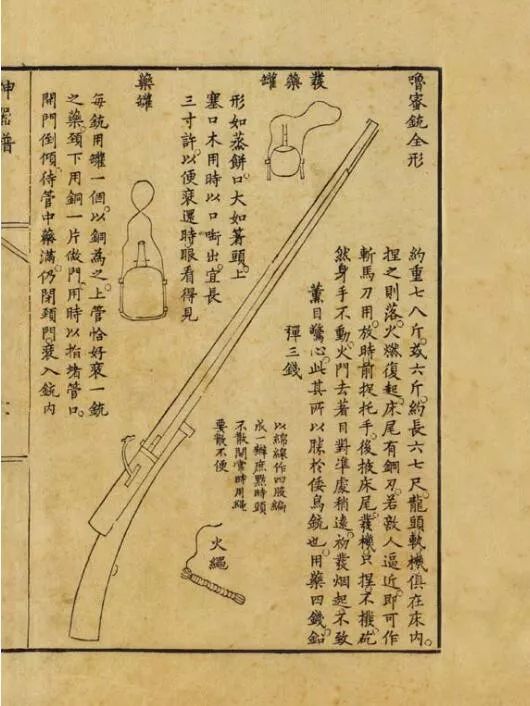 嚕密銃全形
約重七八斤。或六斤。約長六七尺。龍頭軌機俱在床内。
捏之則落。火燃復起。床尾有鋼刃。若敵人逼近。即可作
斬馬刀用。放時前捉托手。後掖床尾。發機只捏不撥。砣
然身手不動。火門去著目對準處稍遠。初發烟起。不致
薰目驚心。此其所以勝於倭鳥銃也。用藥四錢。鉛
彈三錢
發藥罐
形如蒸餅。口大如箸頭。上
塞口木。用時以口啣出。宜長
三寸許。以便裝還時眼看得見
火繩
以綿線作四股編
成一辮庶點時頭
不散開常時用繩
要散不便
藥罐
每銃用罐一個。以銅爲之。上管恰好裝一銃
之藥。頸下用銅一片做門。用時以指堵管口。
開門倒傾。待管中藥滿。仍閉頸門。裝入銃内
神器譜